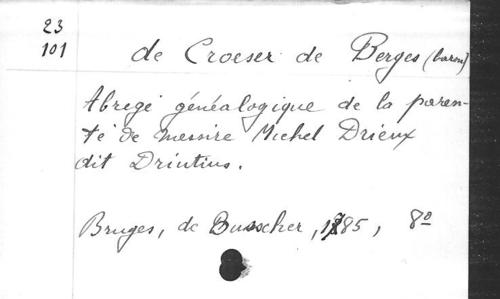 23
101
de Croeser de Berges (baron)
Abregé généalogique de la paren-
té de messire Michel Drieux
dit Driutius.
Bruges, de Busscher, 1785, 8º